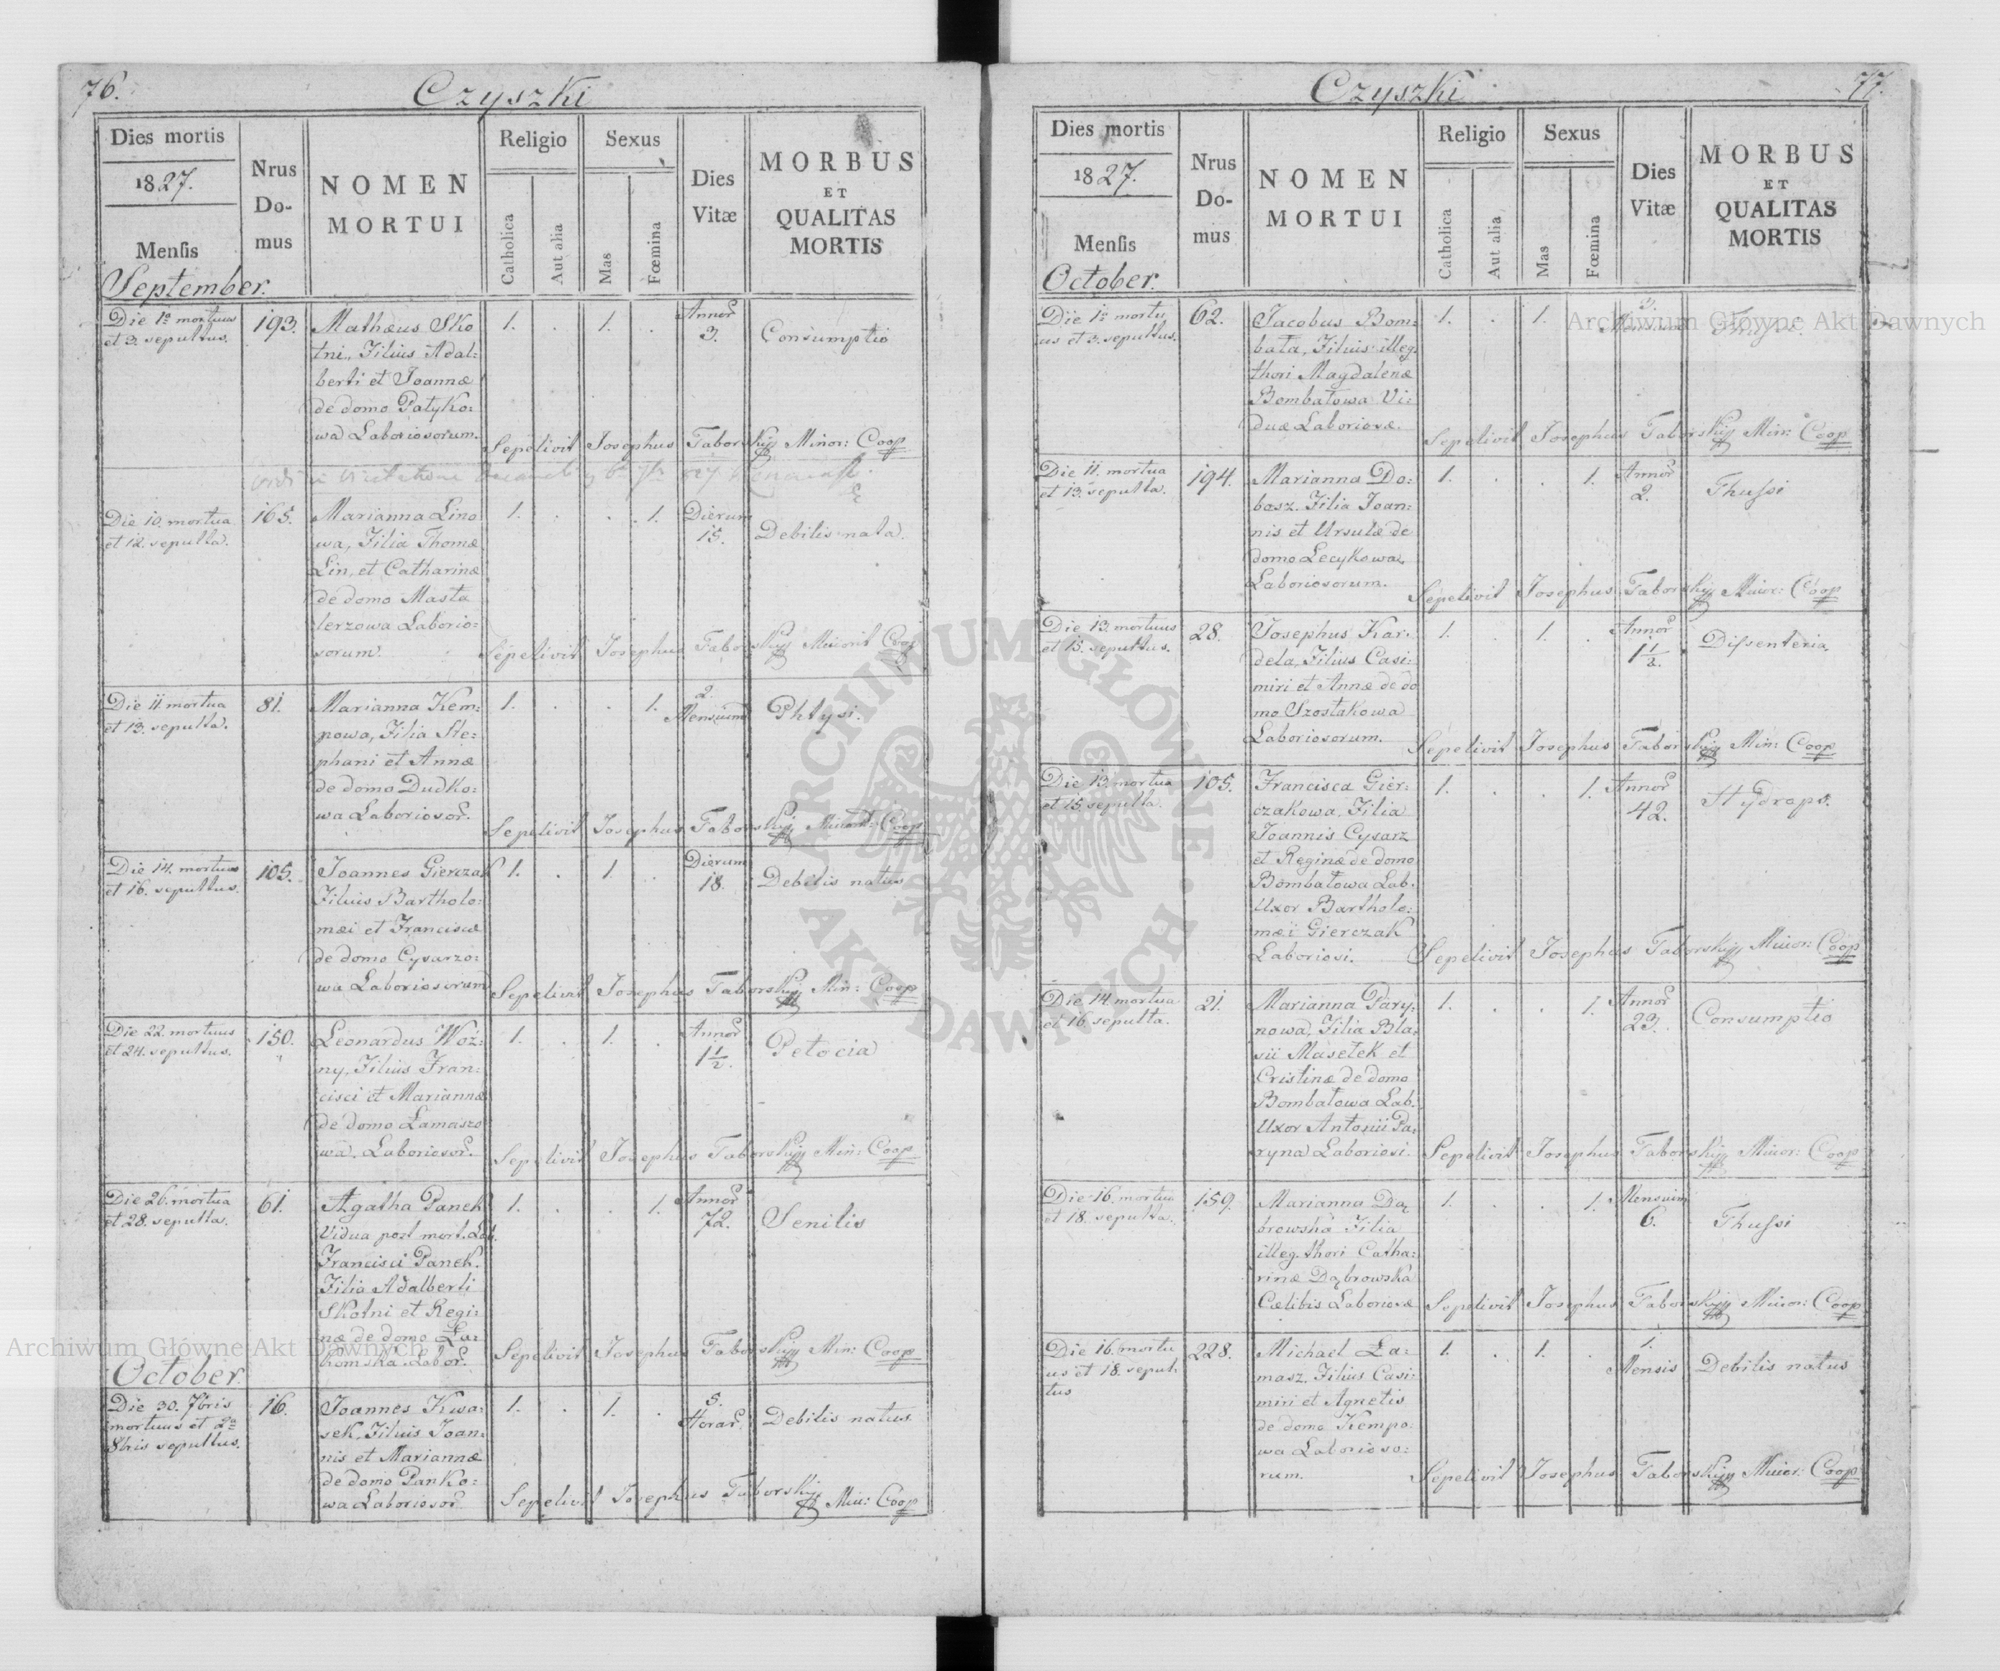 76.
Czyszki
Dies mortis
1827.
Mensis
September.
Nrus
Do-
mus
NOMEN
MORTUI
Religio
Catholica
Aut alia
Sexus
Mas
Fœmina
Dies
Vitæ
MORBUS
ET
QUALITAS
MORTIS
Die 1a mortuus
et 3. sepultus.
193.
Mathæus Sko
tni, Filius Adal-
berti et Joannæ
de domo Patyko:
wa Laboriosorum.
1. . 1. .
Annor
3.
Consumptio
Sepelivit Josephus Taborskÿ Minor: Coop
Die 10. mortua
et 12. sepulta.
165.
Marianna Lino
wa, Filia Thomæ
Lin, et Catharinæ
de domo Masta
lerzowa Laborio:
sorum.
1. . . 1.
Dierum
15.
Debilis nata.
Sepelivit Josephus Taborskÿ Minorit Coop
Die 11 mortua
et 13. sepulta.
81.
Marianna Kem:
powa, Filia Ste:
phani et Annæ
de domo Dudko:
wa Laboriosor.
1. . . 1.
2.
Mensium
Phtysi.
Sepelivit Josephus Taborskÿ Minorit: Coop
Die 14. mortuus
et 16. sepultus.
105.
Joannes Gierczak
Filius Bartholo:
mæi et Franciscæ
de domo Cysarzo:
wa Laboriosorum
1. . 1. .
Dierum
18.
Debilis natus
Sepelivit Josephus Taborskÿ Min: Coop
Die 22. mortuus
et 24. sepultus.
150.
Leonardus Woź:
ny, Filius Fran:
cisci et Mariannæ
de domo Lamaszo
wa, Laboriosor.
1. . 1. .
Annor
1 1/2.
Petocia
Sepelivit Josephus Taborskÿ Min: Coop
Die 26. mortua
et 28. sepulta.
61.
Agatha Panek
Vidua post mort. Lab.
Francisci Panek.
Filia Adalberti
Skotni et Regi:
næ de domo
Labor.
1. . . 1.
Annor
72.
Senilis
Sepelivit Josephus Taborskÿ Min: Coop
October.
Die 30. 7bris
mortuus et 2a
8bris sepultus.
16.
Joannes Kwa:
sek, Filius Joan:
nis et Mariannæ
de domo Panko:
wa Laboriosor
1. . 1. .
5.
Horar.
Debilis natus
Sepelivit Josephus Taborskÿ Min: Coop
77.
Czyszki
Dies mortis
1827.
Mensis
October.
Nrus
Do-
mus
NOMEN
MORTUI
Religio
Catholica
Aut alia
Sexus
Mas
Fœmina
Dies
Vitæ
MORBUS
ET
QUALITAS
MORTIS
Die 1a mortu
us et 3. sepultus.
62.
Jacobus Bom:
bała, Filius illeg.
thori Magdalenæ
Bombałowa Vi:
duæ Laboriosæ.
1. . 1.
3.
Sepelivit Josephus Taborskÿ Min: Coop
Die 11. mortua
et 13. sepulta.
194.
Marianna Do:
basz. Filia Joan:
nis et Ursulæ de
domo Lecykowa
Laboriosorum.
1. . . 1.
Annor
2.
Thussi
Sepelivit Josephus Taborskÿ Minor: Coop
Die 13. mortuus
et 15. sepultus.
28.
Josephus Kar:
dela, Filius Casi:
miri et Annæ de do
mo Szostakowa
Laboriosorum.
1. . 1. .
Annor
1 1/2.
Dissenteria,
Sepelivit Josephus Taborskÿ Min: Coop
Die 13. mortua
et 15. sepulta.
105.
Francisca Gier:
czakowa, Filia
Joannis Cysarz
et Reginæ de domo
Bombałowa Lab.
Uxor Bartholo:
mæi Gierczak
Laboriosi.
1. . . 1.
Annor
42.
Hydrops.
Sepelivit Josephus Taborskÿ Minor: Coop
Die 14. mortua
et 16. sepulta.
21.
Marianna Pary:
nowa, Filia Bla:
sii Masełek et
Cristinæ de domo
Bombałowa Lab.
Uxor Antonii Pa:
ryna Laboriosi.
1. . . 1.
Annor
23.
Consumptio
Sepelivit Josephus Taborskÿ Minor: Coop
Die 16. mortua
et 18. sepulta.
159.
Marianna Dą
browska Filia
illeg. thori Catha:
rinæ Dąbrowska
Cælibis Laboriosæ
1. . . 1.
Mensium
6.
Thussi
Sepelivit Josephus Taborskÿ Minor: Coop
Die 16. mortu
us et 18. sepul:
tus
228.
Michael La:
masz. Filius Casi:
miri et Agnetis
de domo Kempo:
wa Laborioso:
rum.
1. . 1. .
1.
Mensis
Debilis natus
Sepelivit Josephus Taborskÿ Minor: Coop
Archiwum Główne Akt Dawnych
Archiwum Główne Akt Dawnych
ARCHIWUM GŁÓWNE
AKT DAWNYCH